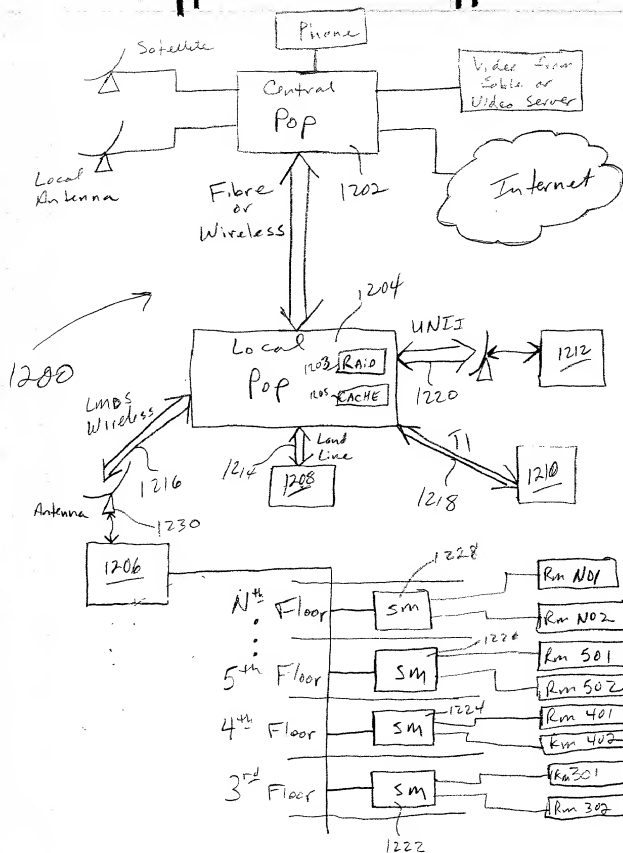 Phone
Satellite
Central
Pop
Video from
Cable or
Video Server
Local
Antenna
1202
Internet
Fibre
or
Wireless
1200
1204
Local
Pop
1203 RAID
1205 CACHE
UNII
1220
1212
LMDS
Wireless
1216
1214
Land
Line
1208
T1
1218
1210
Antenna
1230
1206
1228
Nth Floor
SM
Rm N01
Rm N02
5th Floor
SM
Rm 501
Rm 502
1224
4th Floor
SM
Rm 401
Rm 402
3rd Floor
SM
Rm 301
Rm 302
1222